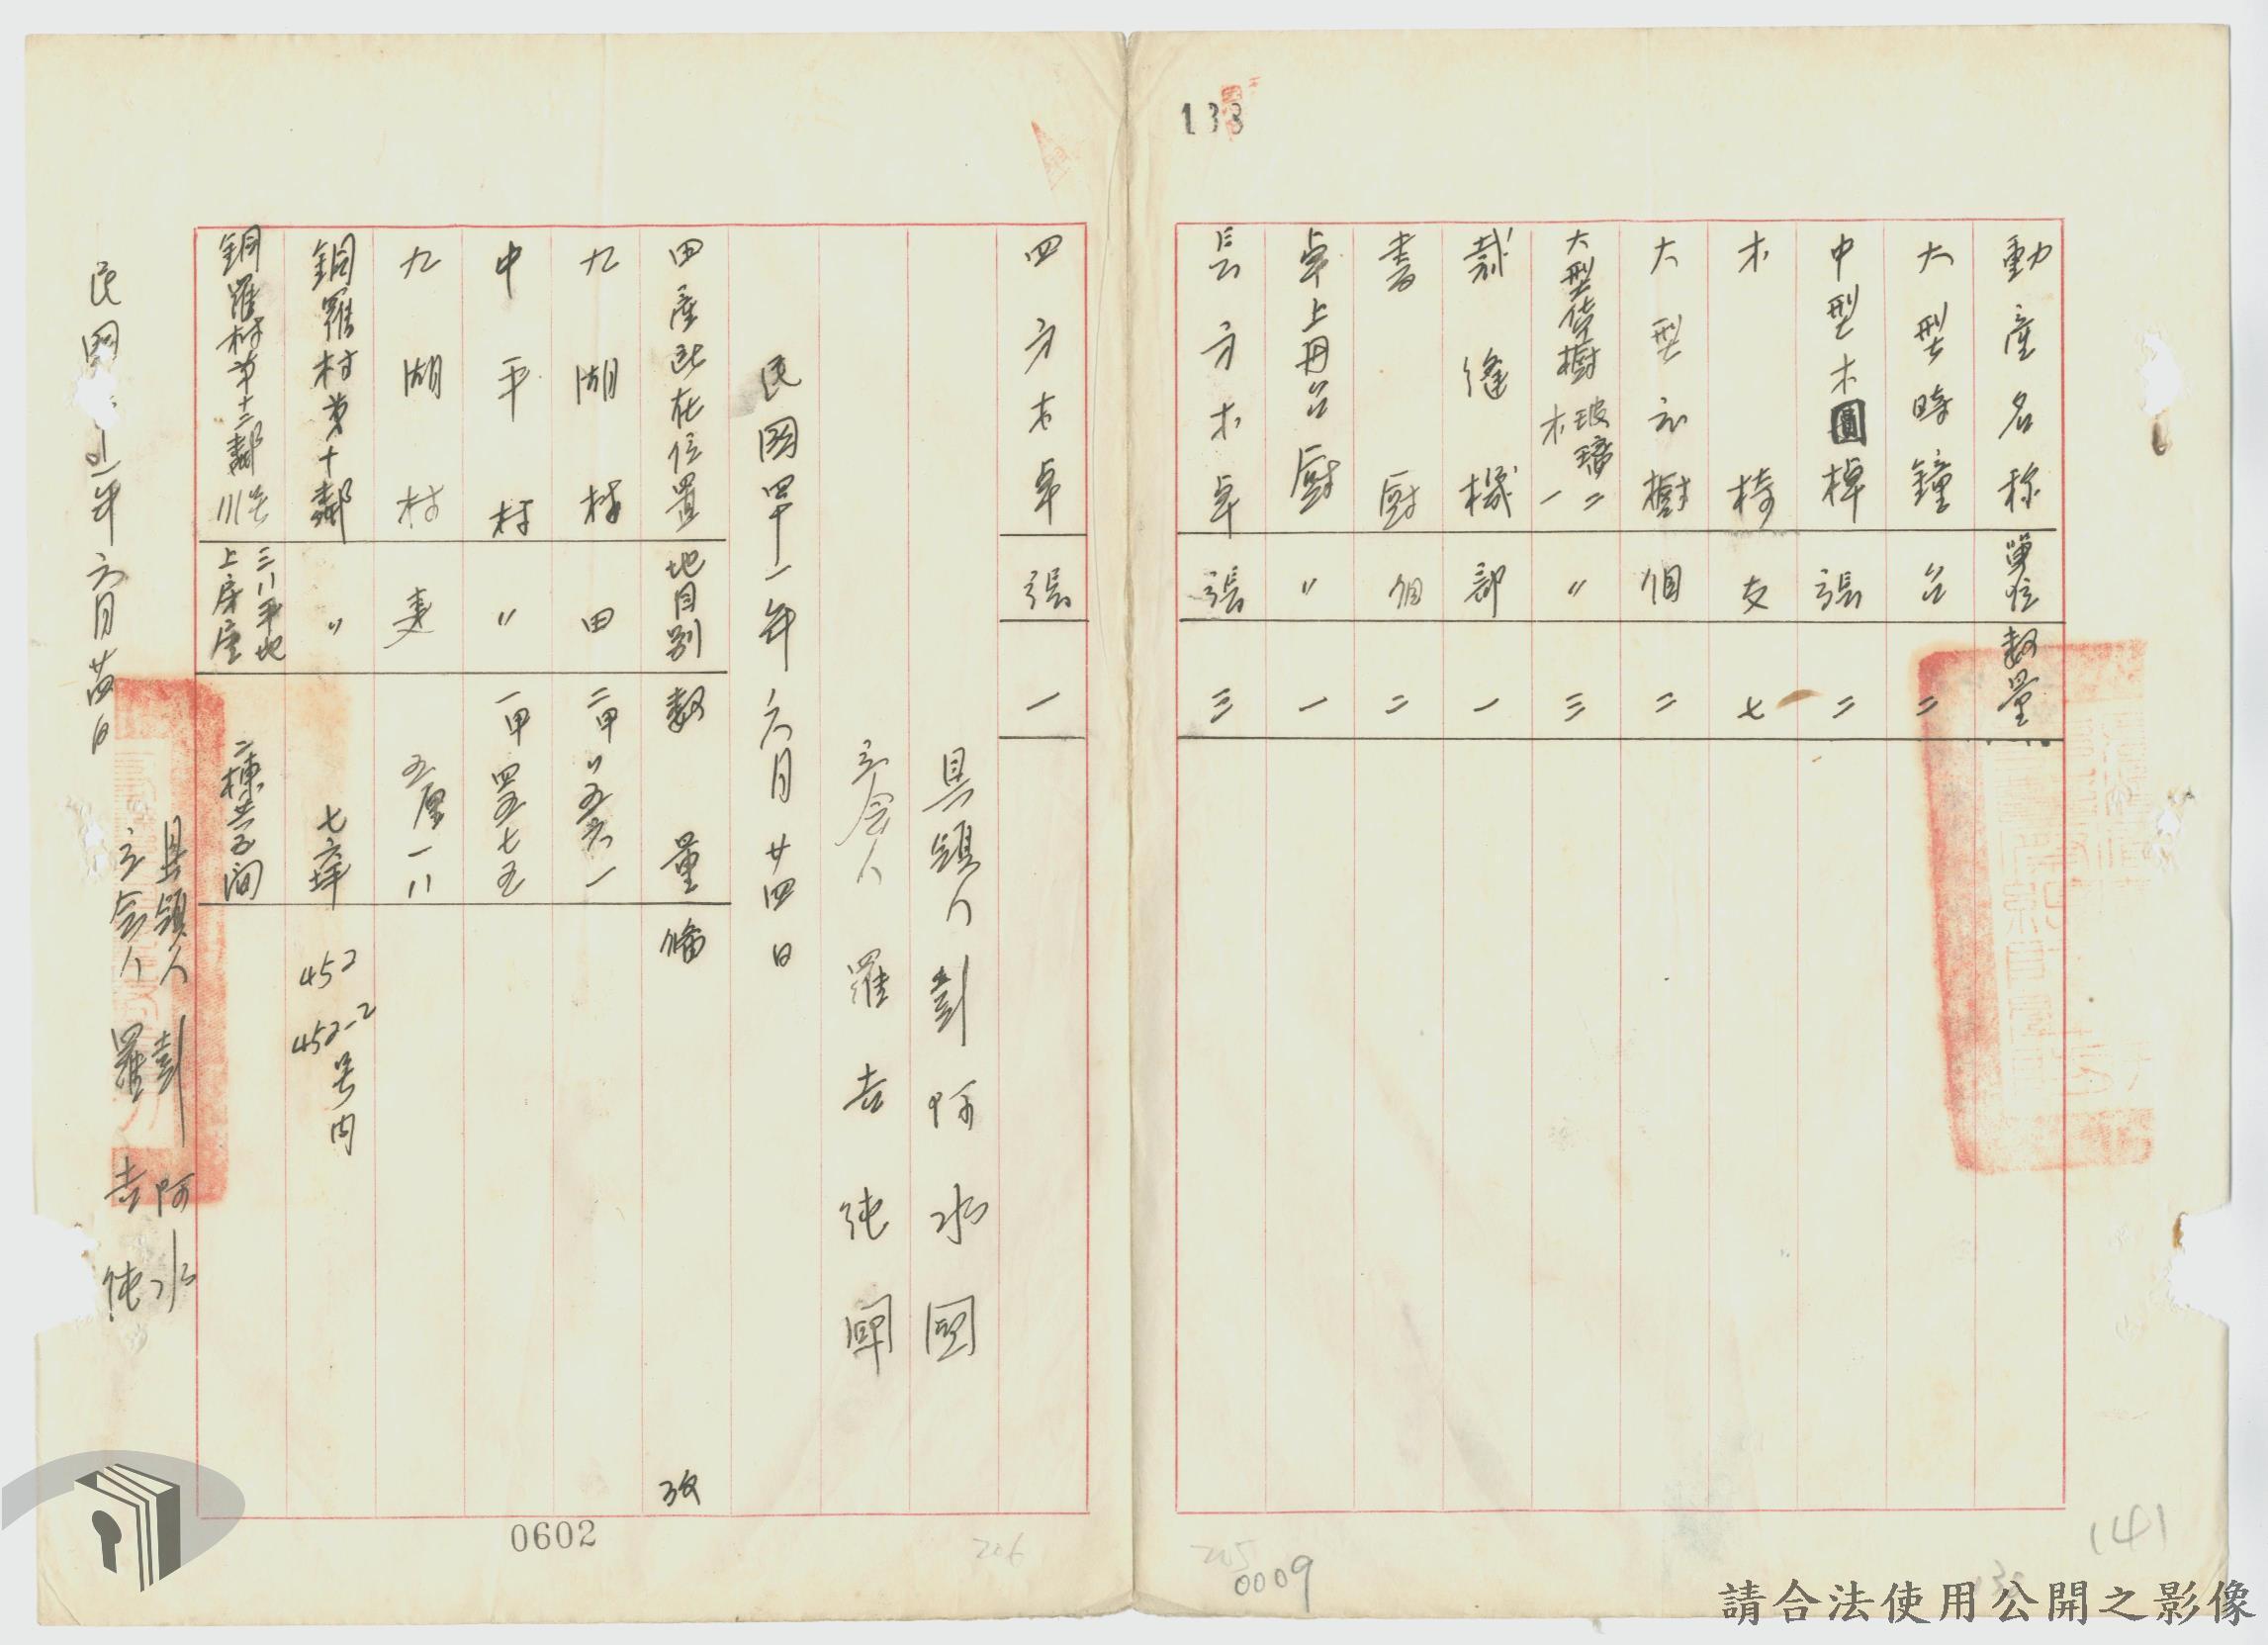 133
動產名称 單位 数量
大型時鐘 台 二
中型木圓棹 張 二
木椅 支 七
大型衣櫥 個 二
大型貨櫥 玻璃二 木一 〃 三
裁縫機 部 一
書厨 個 二
卓上毋台厨 〃 一
長方木卓 張 三
四方木卓 張 一
具領人 彭阿水
立会人 羅吉純
民國四十一年六月廿四日
田產所在位置 地目別 数量 備攷
九湖村 田 二甲〃五六一
中平村 〃 一甲四五七五
九湖村 五厘一八
銅羅村第十鄰 〃 七六坪 452 452-2号內
銅羅村第十二鄰 三八平地上房屋 二棟共五间
年六月廿四日
具領人 彭阿水
立会人 羅吉純
0602
206
205
0009
141
請合法使用公開之影像